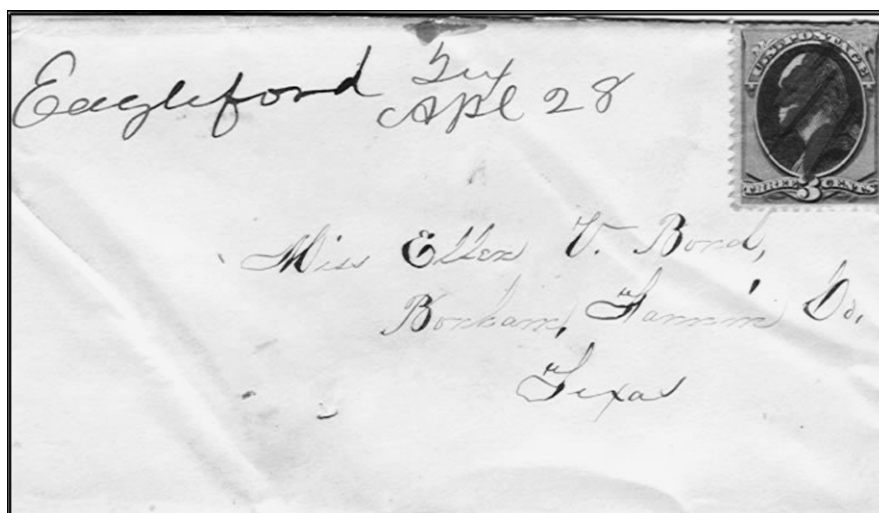 Eagleford Tex
Apl 28
U.S. POSTAGE
THREE 3 CENTS
Miss Ellen V. Bond,
Bonham, Fannin Co,
Texas